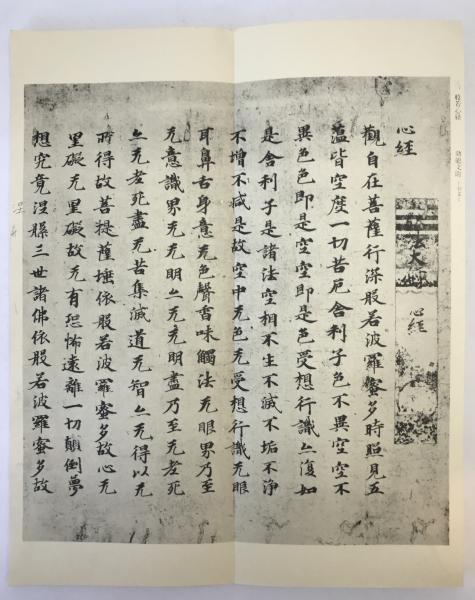 般若心経
法大師
心經
心経
觀自在菩薩行深般若波羅蜜多時照見五
蘊皆空度一切苦厄舍利子色不異空空不
異色色即是空空即是色受想行識亦復如
是舍利子是諸法空相不生不滅不垢不淨
不增不減是故空中无色无受想行識无眼
耳鼻舌身意无色聲香味觸法无眼界乃至
无意識界无无明亦无无明盡乃至无老死
亦无老死盡无苦集滅道无智亦无得以无
所得故菩提薩埵依般若波羅蜜多故心无
罣礙无罣礙故无有恐怖遠離一切顛倒夢
想究竟涅槃三世諸佛依般若波羅蜜多故